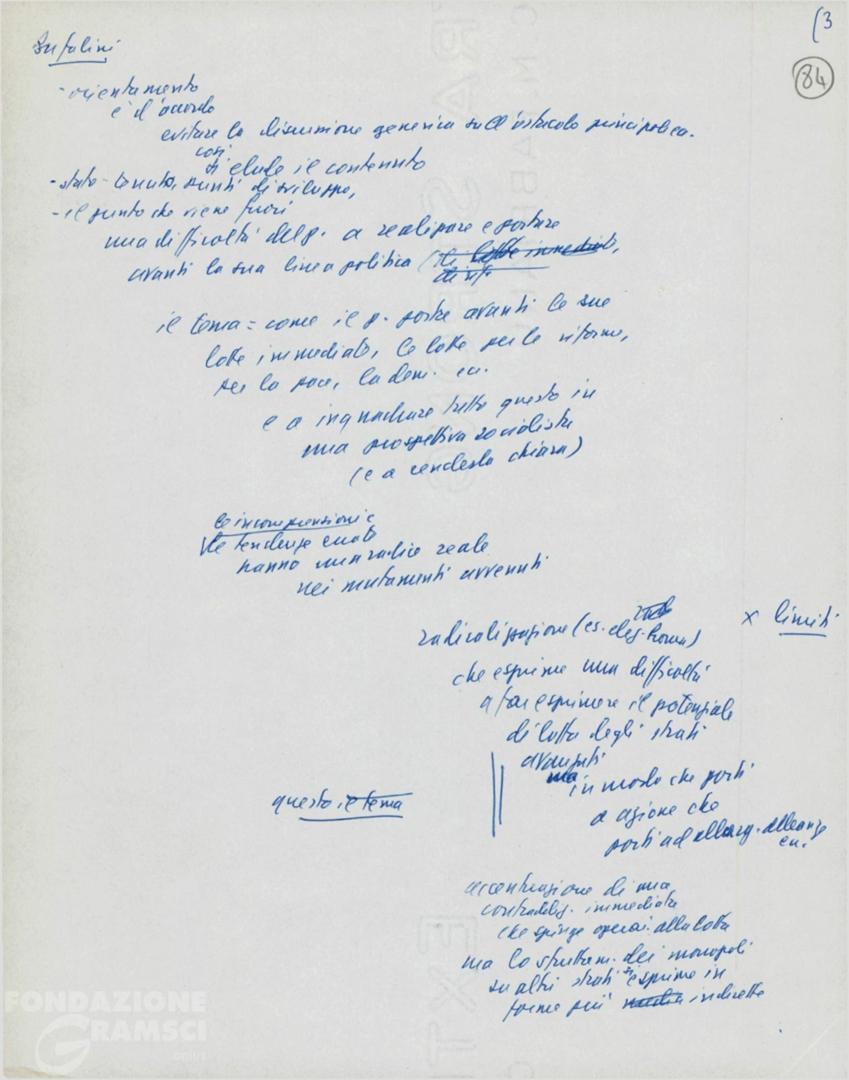 (3
84
Bufalini
- orientamento
è d'accordo
evitare la discussione generica sull'ostacolo principale ecc.
così
si elude il contenuto
- stato - tenuta, punti di sviluppo,
- il punto che viene fuori
una difficoltà del p. a realizzare e portare
avanti la sua linea politica (le lotte immediate,
di rif.
il tema = come il p. porta avanti le sue
lotte immediate, le lotte per le riforme,
per la pace, la dem. ecc.
e a inquadrare tutto questo in
una prospettiva socialista
(e a renderla chiara)
le incomprensioni e
le tendenze errate
hanno una radice reale
nei mutamenti avvenuti
radicalizzazione (es. elez. Roma)
x limiti
che esprime una difficoltà
a far esprimere il potenziale
di lotta degli strati
avanzati
ma in modo che porti
a azione che
porti ad allarg. alleanze
ecc.
questo il tema
accentuazione di una
contraddiz. immediata
che spinge operai alla lotta
ma lo sfruttam. dei monopoli
su altri strati si esprime in
forme più indirette
FONDAZIONE
GRAMSCI
onlus